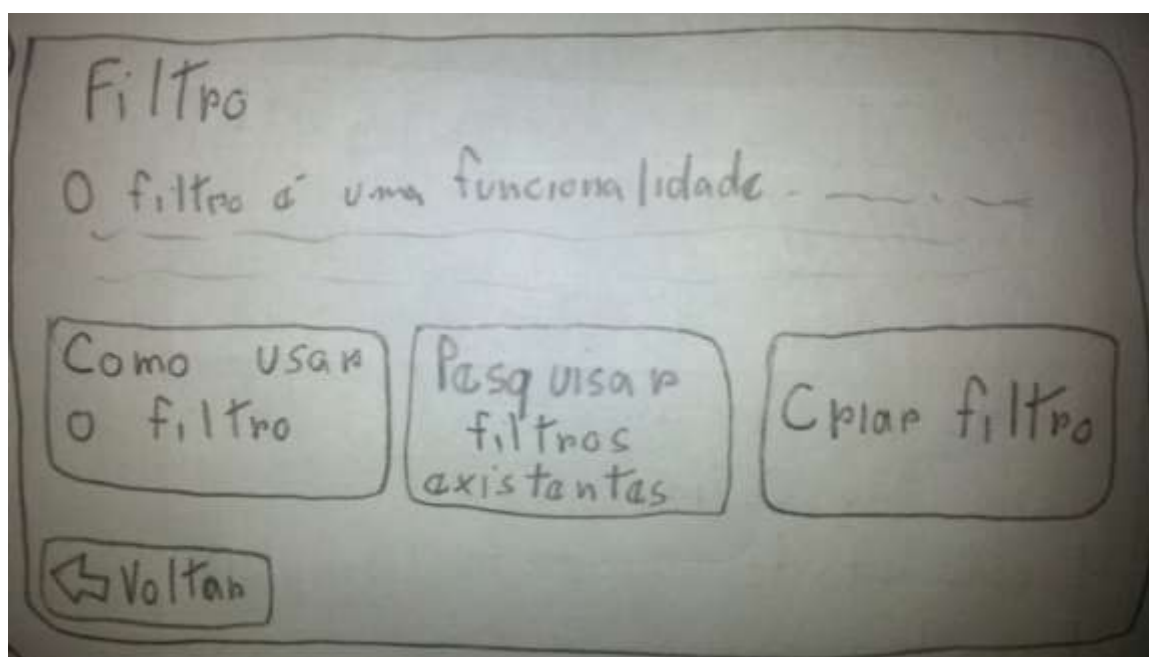 Filtro
O filtro é uma funcionalidade
Como usar
o filtro
Pesquisar
filtros
existentes
Criar filtro
Voltar